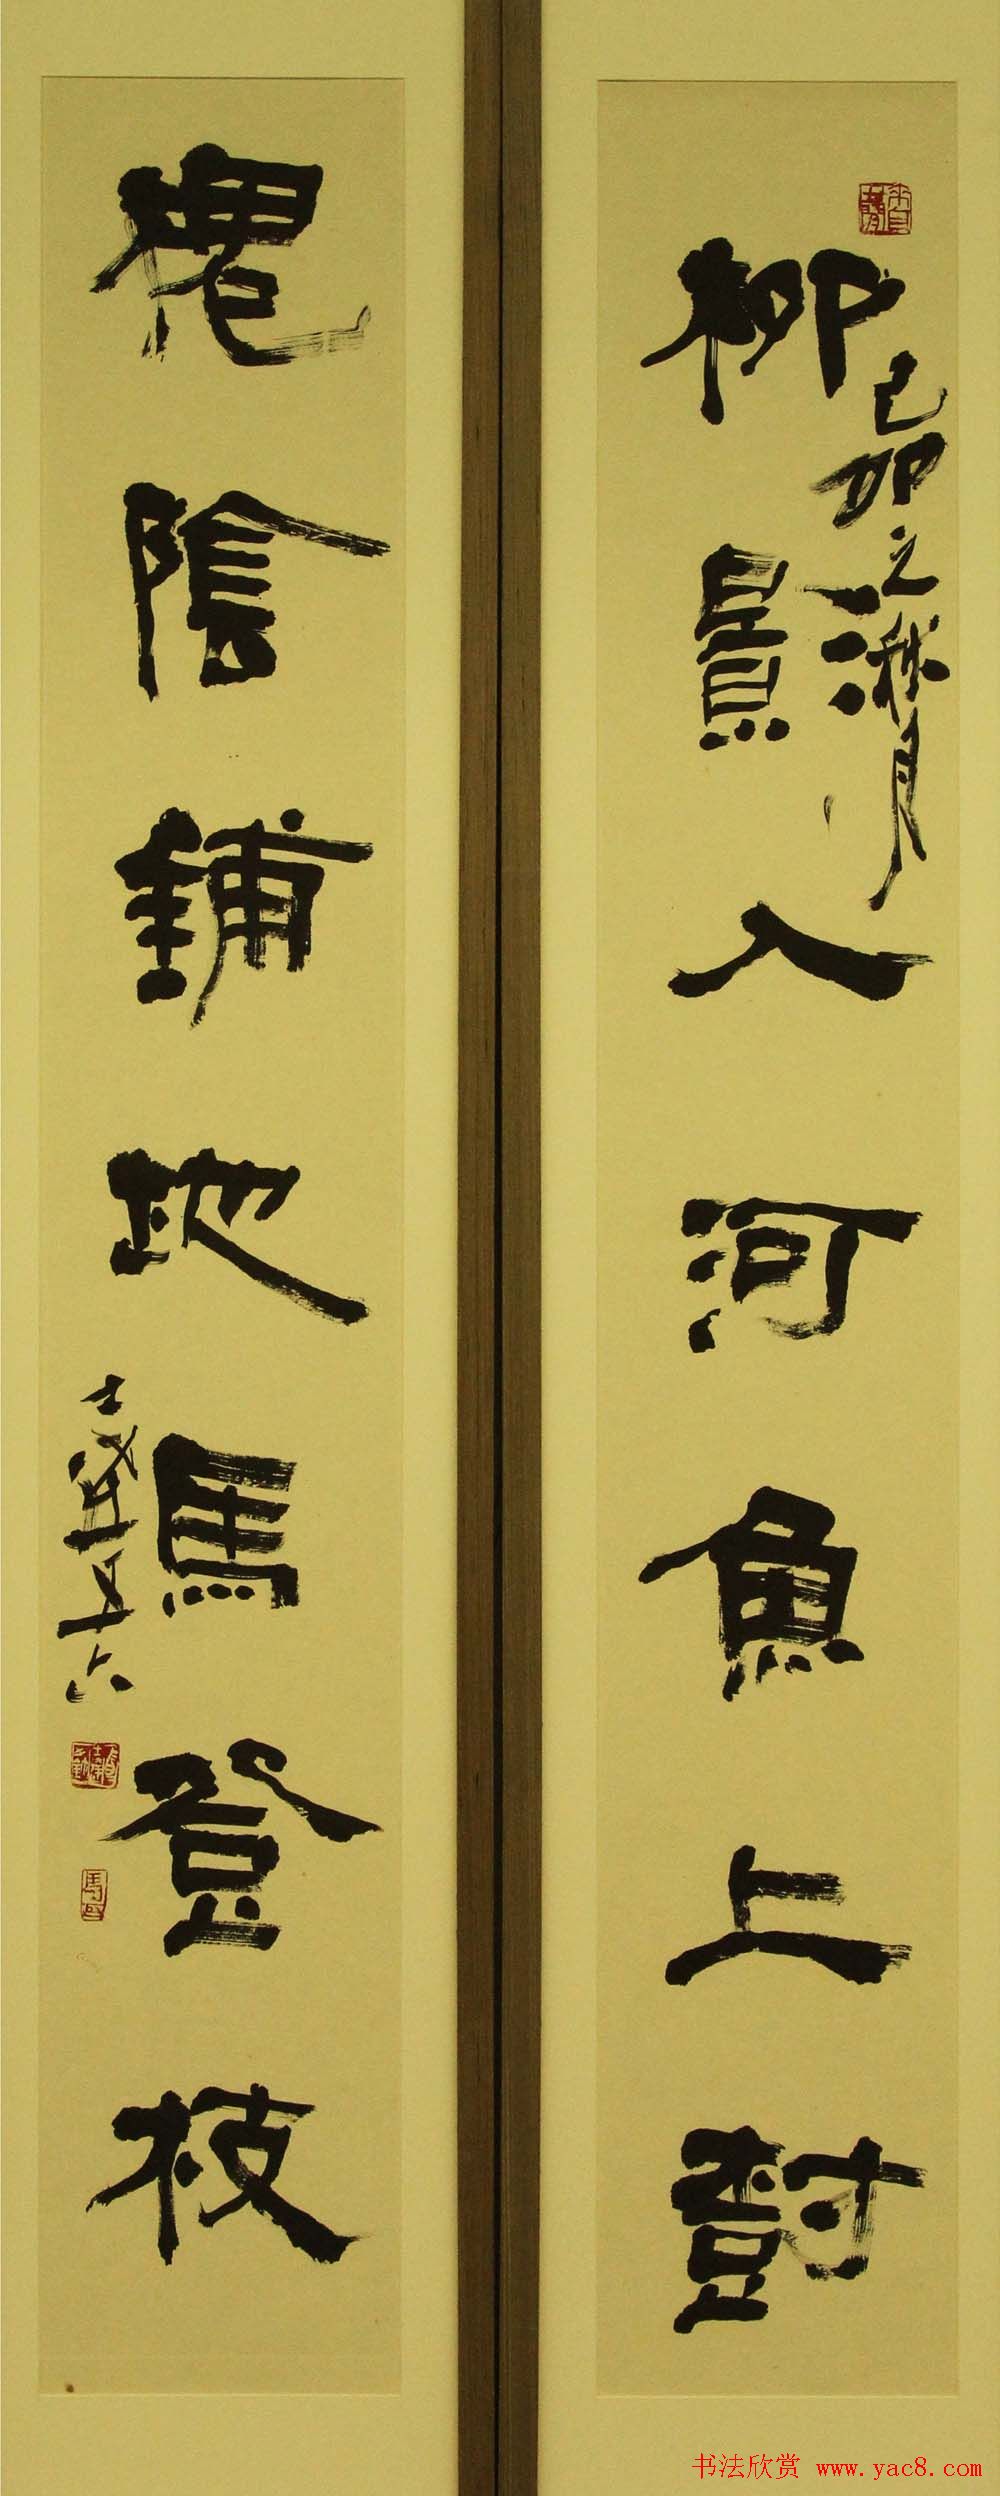 柳景入河魚上尌
己卯之 月
槐陰鋪地馬登枝
士達五六
书法欣赏 www.yac8.com